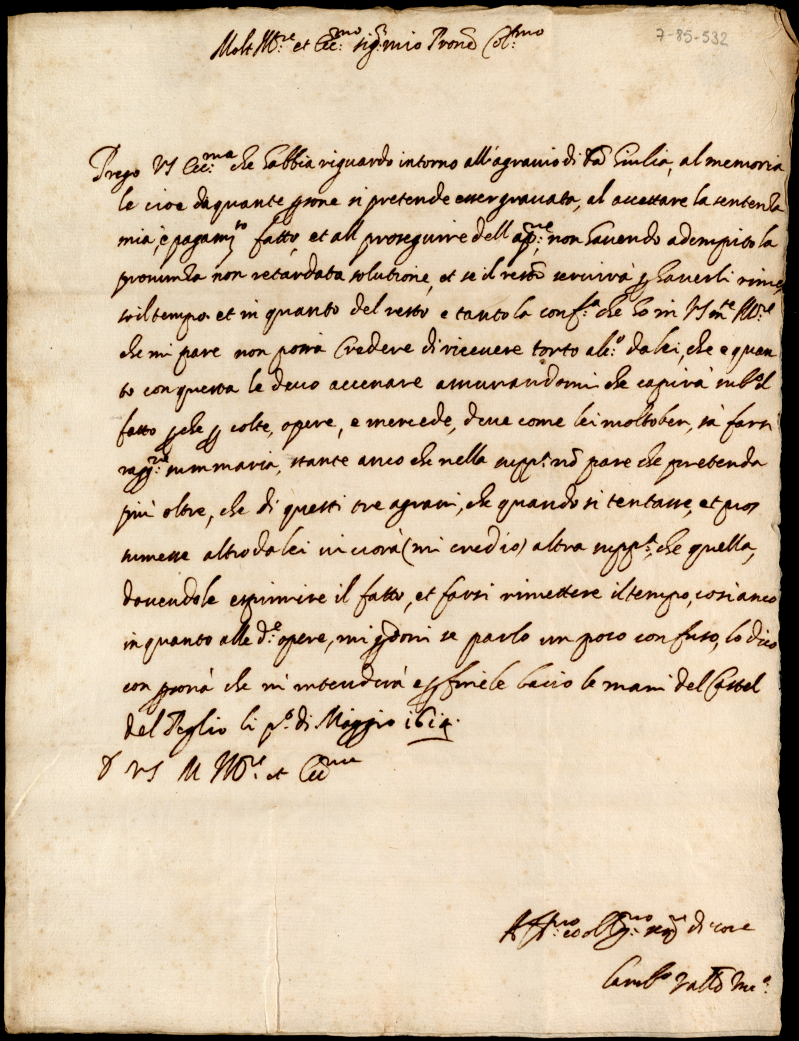 Molt Ill.re et Ecc.mo sig.r mio Prone Col.mo
7-85-532
Prego VS Ecc.ma che habbia riguardo intorno all'agravio di Giulia, al memoria
le cioe da quante si pretende esser gravata, al accettare la sentenza
mia, e pagam.to fatto, et all proseguire dell ap.ne non havendo adempito la
pronunza non retardata solutione, et se il resto servirà haverli
il tempo et in quanto del resto e tanto la conf.a che ho in VS m.to Ill.re
che mi pare non possa Credere di ricevere torto alc.o da lei, che e quan
to con questa le devo accenare che capirà sub.o il
fatto che colte, opere, e mercede, deve come lei molto ben sà farsi
summaria, stante anco che nella supp.a nõ pare che pretenda
più oltre, che di questi tre agravi, che quando si tentasse, et
altro da lei vi (mi credio) altra supp.a, che quella,
dovendole esprimire il fatto, et farsi rimettere il tempo, cosi anco
in quanto alle d.e opere, mi doni se parlo un poco confuso, lo dico
con che m'intenderà e fine le bacio le mani del Castel
del Peglio li p.o di Maggio 1614.
D VS M Ill.re et Ecc.ma
Aff.mo et obl.mo ser.re di core